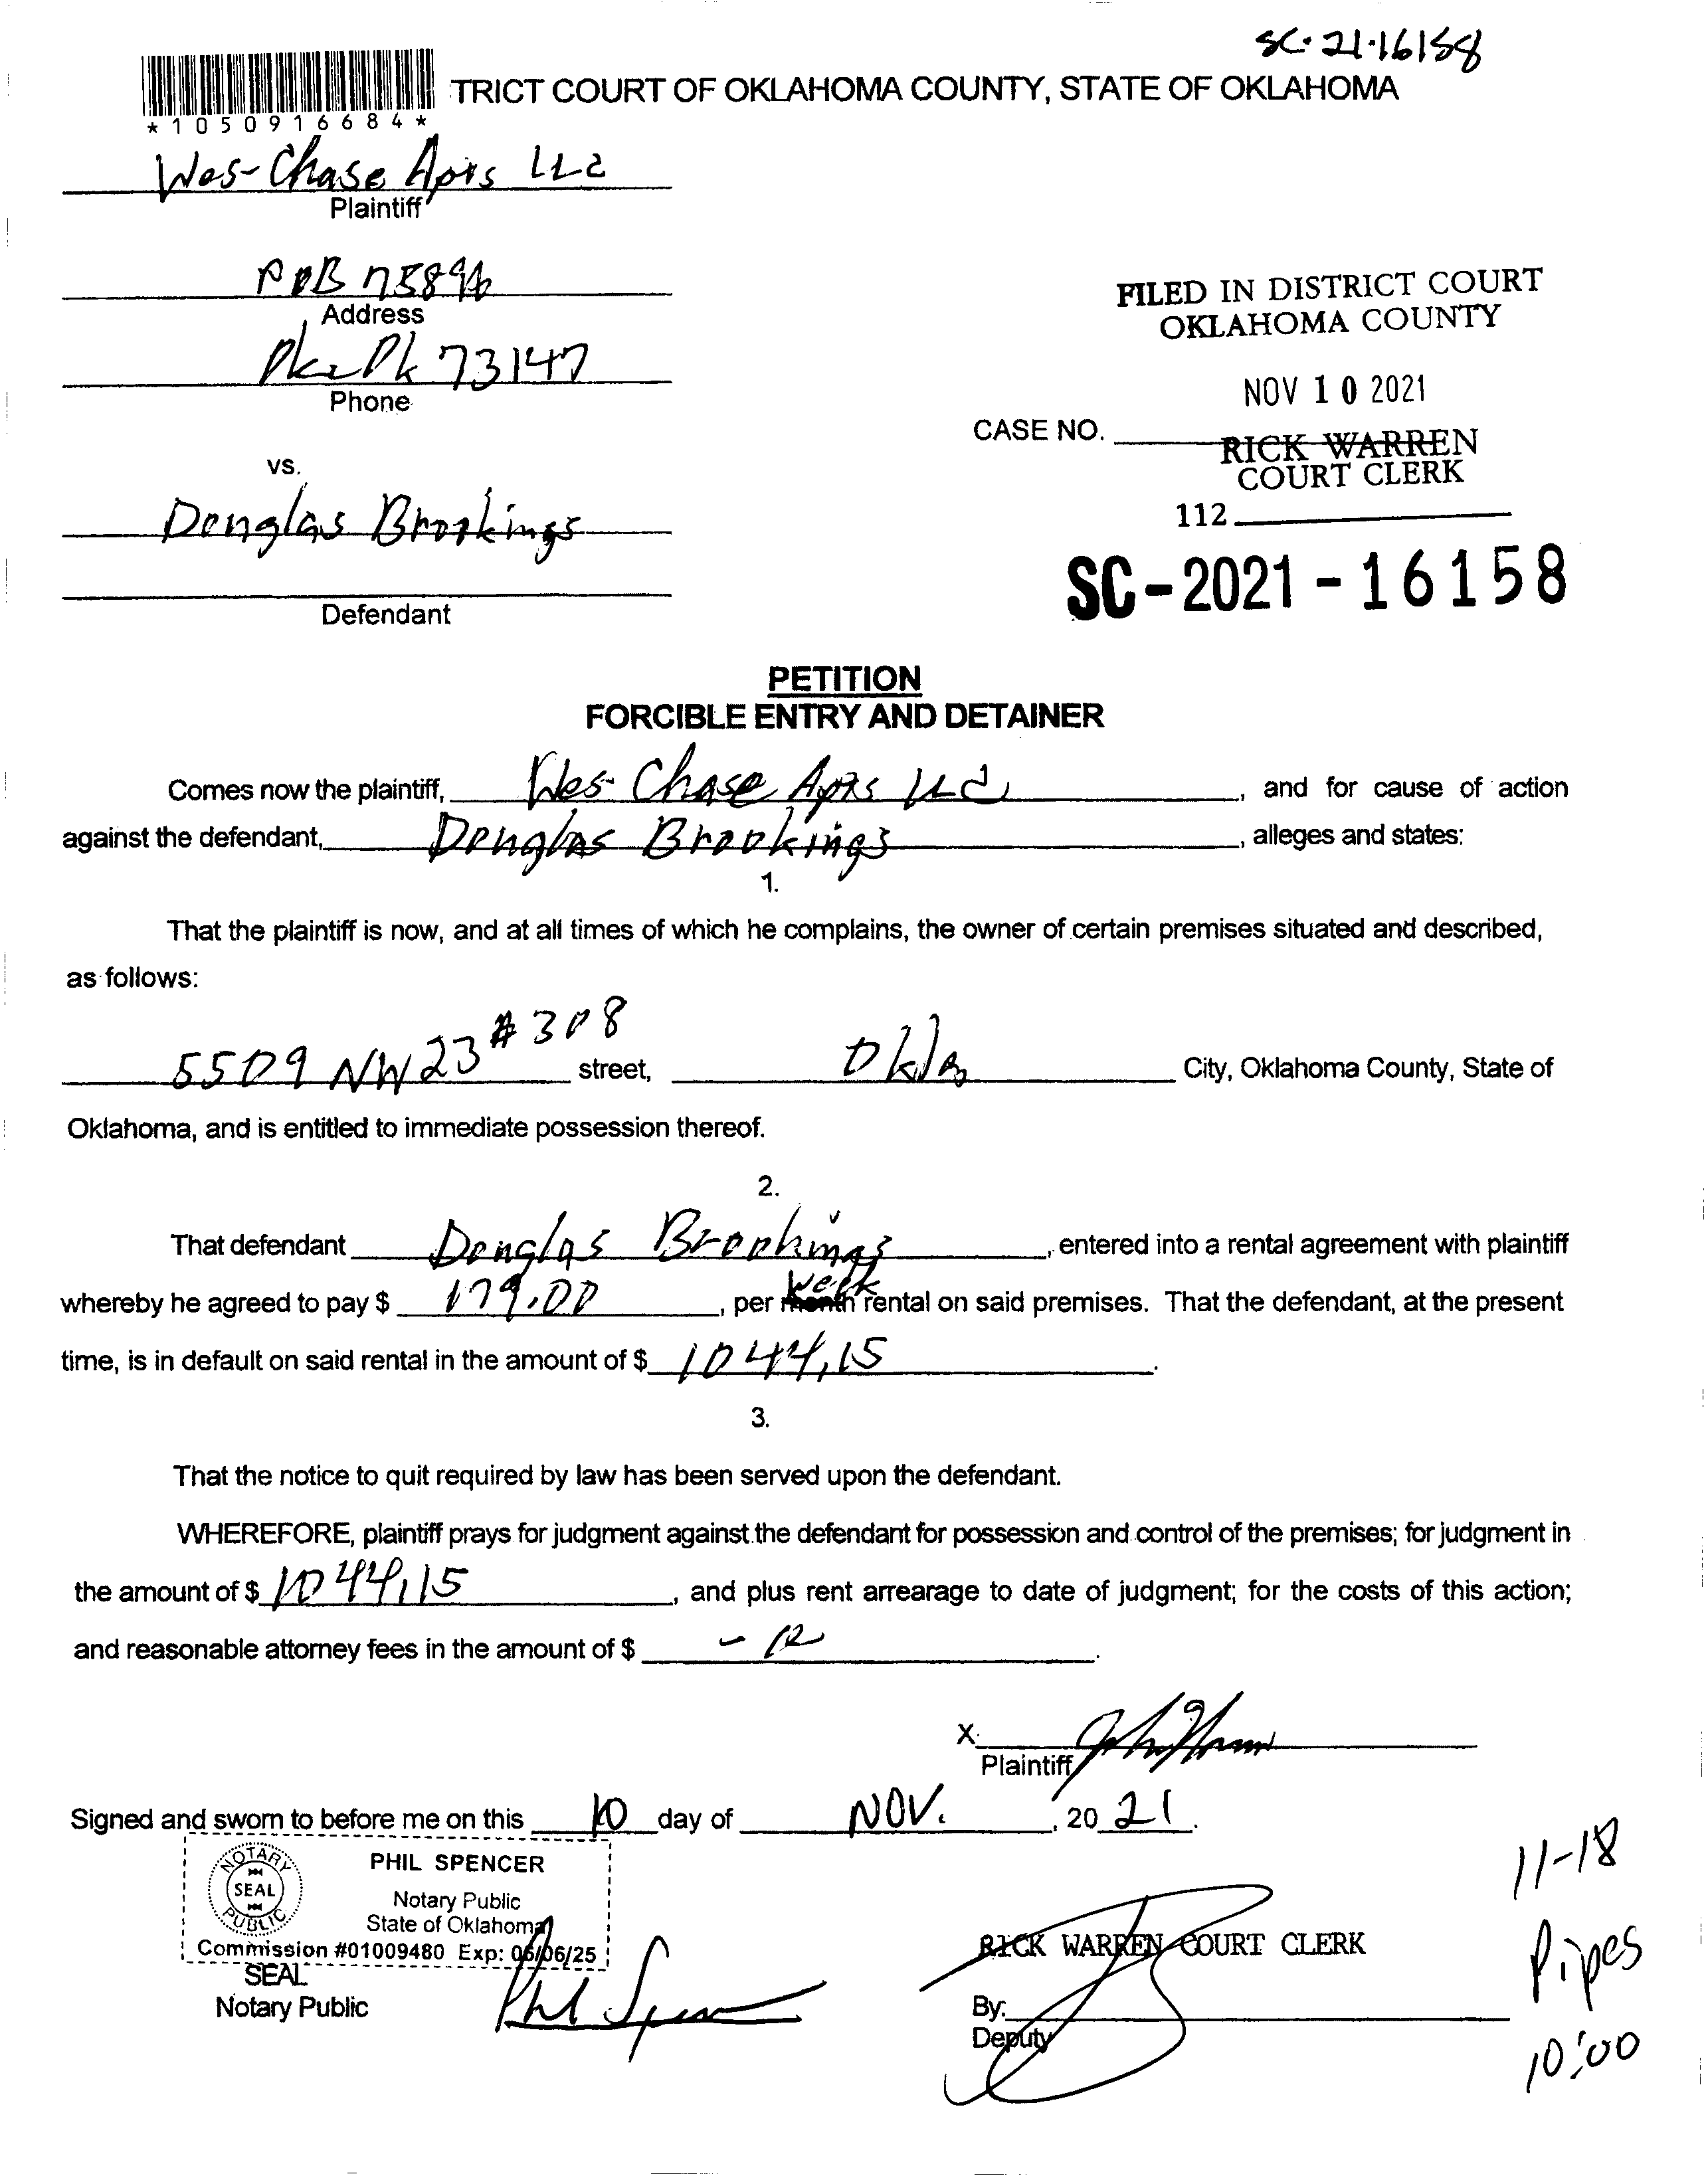 SC-21-16158
TRICT COURT OF OKLAHOMA COUNTY, STATE OF OKLAHOMA
*1050916684*
Wes-Chase Apts LLC
Plaintiff
POB 75896
Address
Okc Ok 73147
Phone
FILED IN DISTRICT COURT
OKLAHOMA COUNTY
NOV 10 2021
CASE NO.
RICK WARREN
COURT CLERK
112
vs.
Douglas Brookings
Defendant
SC-2021-16158
PETITION
FORCIBLE ENTRY AND DETAINER
Comes now the plaintiff, Wes-Chase Apts LLC, and for cause of action
against the defendant, Douglas Brookings, alleges and states:
1.
That the plaintiff is now, and at all times of which he complains, the owner of certain premises situated and described,
as follows:
5509 NW 23 #308 street, Okla City, Oklahoma County, State of
Oklahoma, and is entitled to immediate possession thereof.
2.
That defendant Douglas Brookings, entered into a rental agreement with plaintiff
whereby he agreed to pay $ 179.00, per month week rental on said premises. That the defendant, at the present
time, is in default on said rental in the amount of $ 1044.15.
3.
That the notice to quit required by law has been served upon the defendant.
WHEREFORE, plaintiff prays for judgment against the defendant for possession and control of the premises; for judgment in
the amount of $ 1044.15, and plus rent arrearage to date of judgment; for the costs of this action;
and reasonable attorney fees in the amount of $
X
Plaintiff
Signed and sworn to before me on this 10 day of NOV., 20 21.
NOTARY PUBLIC
SEAL
PHIL SPENCER
Notary Public
State of Oklahoma
Commission #01009480 Exp: 06/06/25
SEAL
Notary Public
Phil Spencer
RICK WARREN COURT CLERK
By:
Deputy
11-18
Pipes
10:00